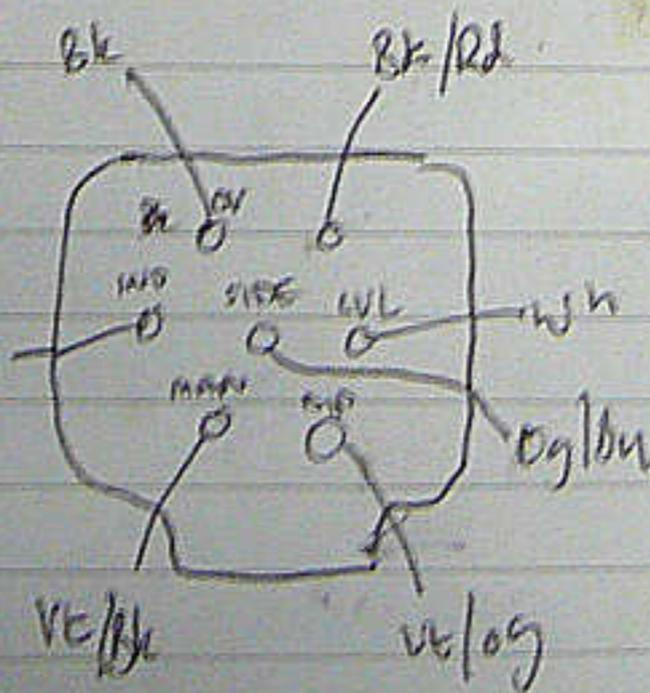 Bk
Bk/Rd
IND
SIDE
LVL
Wh
MAIN
Og/Bu
Vt/Bk
Vt/og